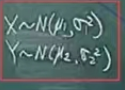 X~N(μ₁,σ₁²)
Y~N(μ₂,σ₂²)